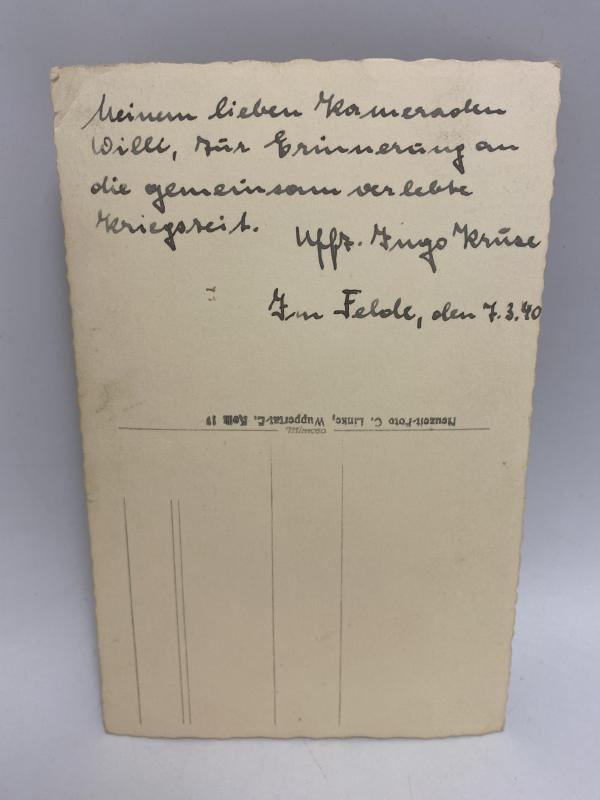 Meinem lieben Kameraden
Willi, zur Erinnerung an
die gemeinsam verlebte
Kriegszeit.
Uffz. Ingo Krüse
Im Felde, den 7.3.40
Neuzeit-Foto C. Linke, Wuppertal-E.
Mimosa